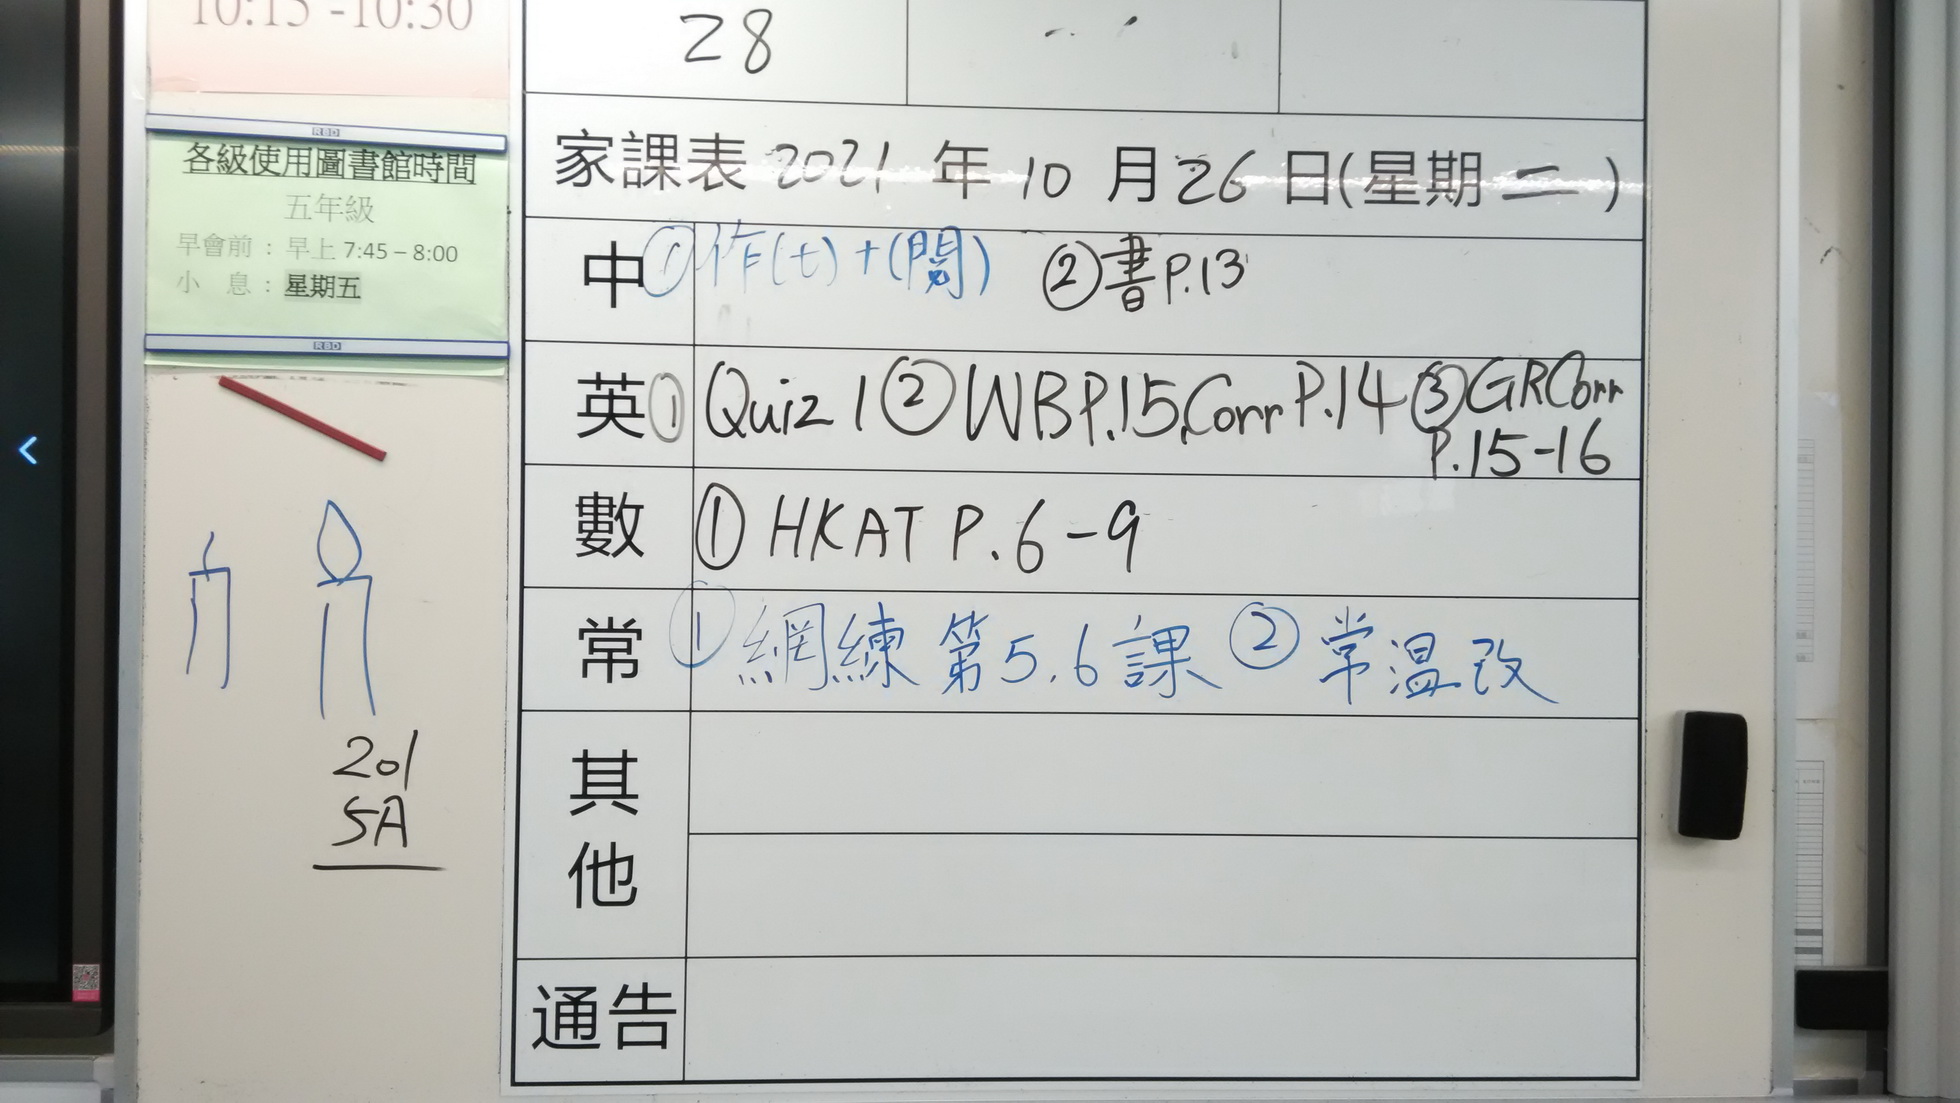 10:15 -10:30
28
RBD
各級使用圖書館時間
五年級
早會前：早上 7:45 – 8:00
小 息：星期五
RBD
家課表 2021 年 10 月 26 日(星期二)
中 ①作(七)+(閱) ②書P.13
英 ①Quiz 1 ②WBP.15,Corr P.14 ③GRCorr
P.15-16
數 ①HKAT P.6-9
常 ①網練第5.6課 ②常温改
其他
通告
201
5A